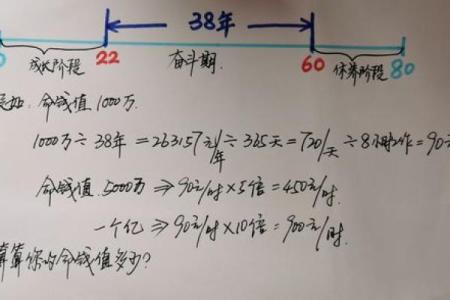 38年
0 成长阶段 22 奋斗期 60 休养阶段 80
如:命钱值1000万.
1000万÷38年=263157元/年÷365天=720/天÷8小时工作=90元
命钱值5000万⇒90元/时×5倍=450元/时.
一个亿⇒90元/时×10倍=900元/时.
算算你的命钱值多少?